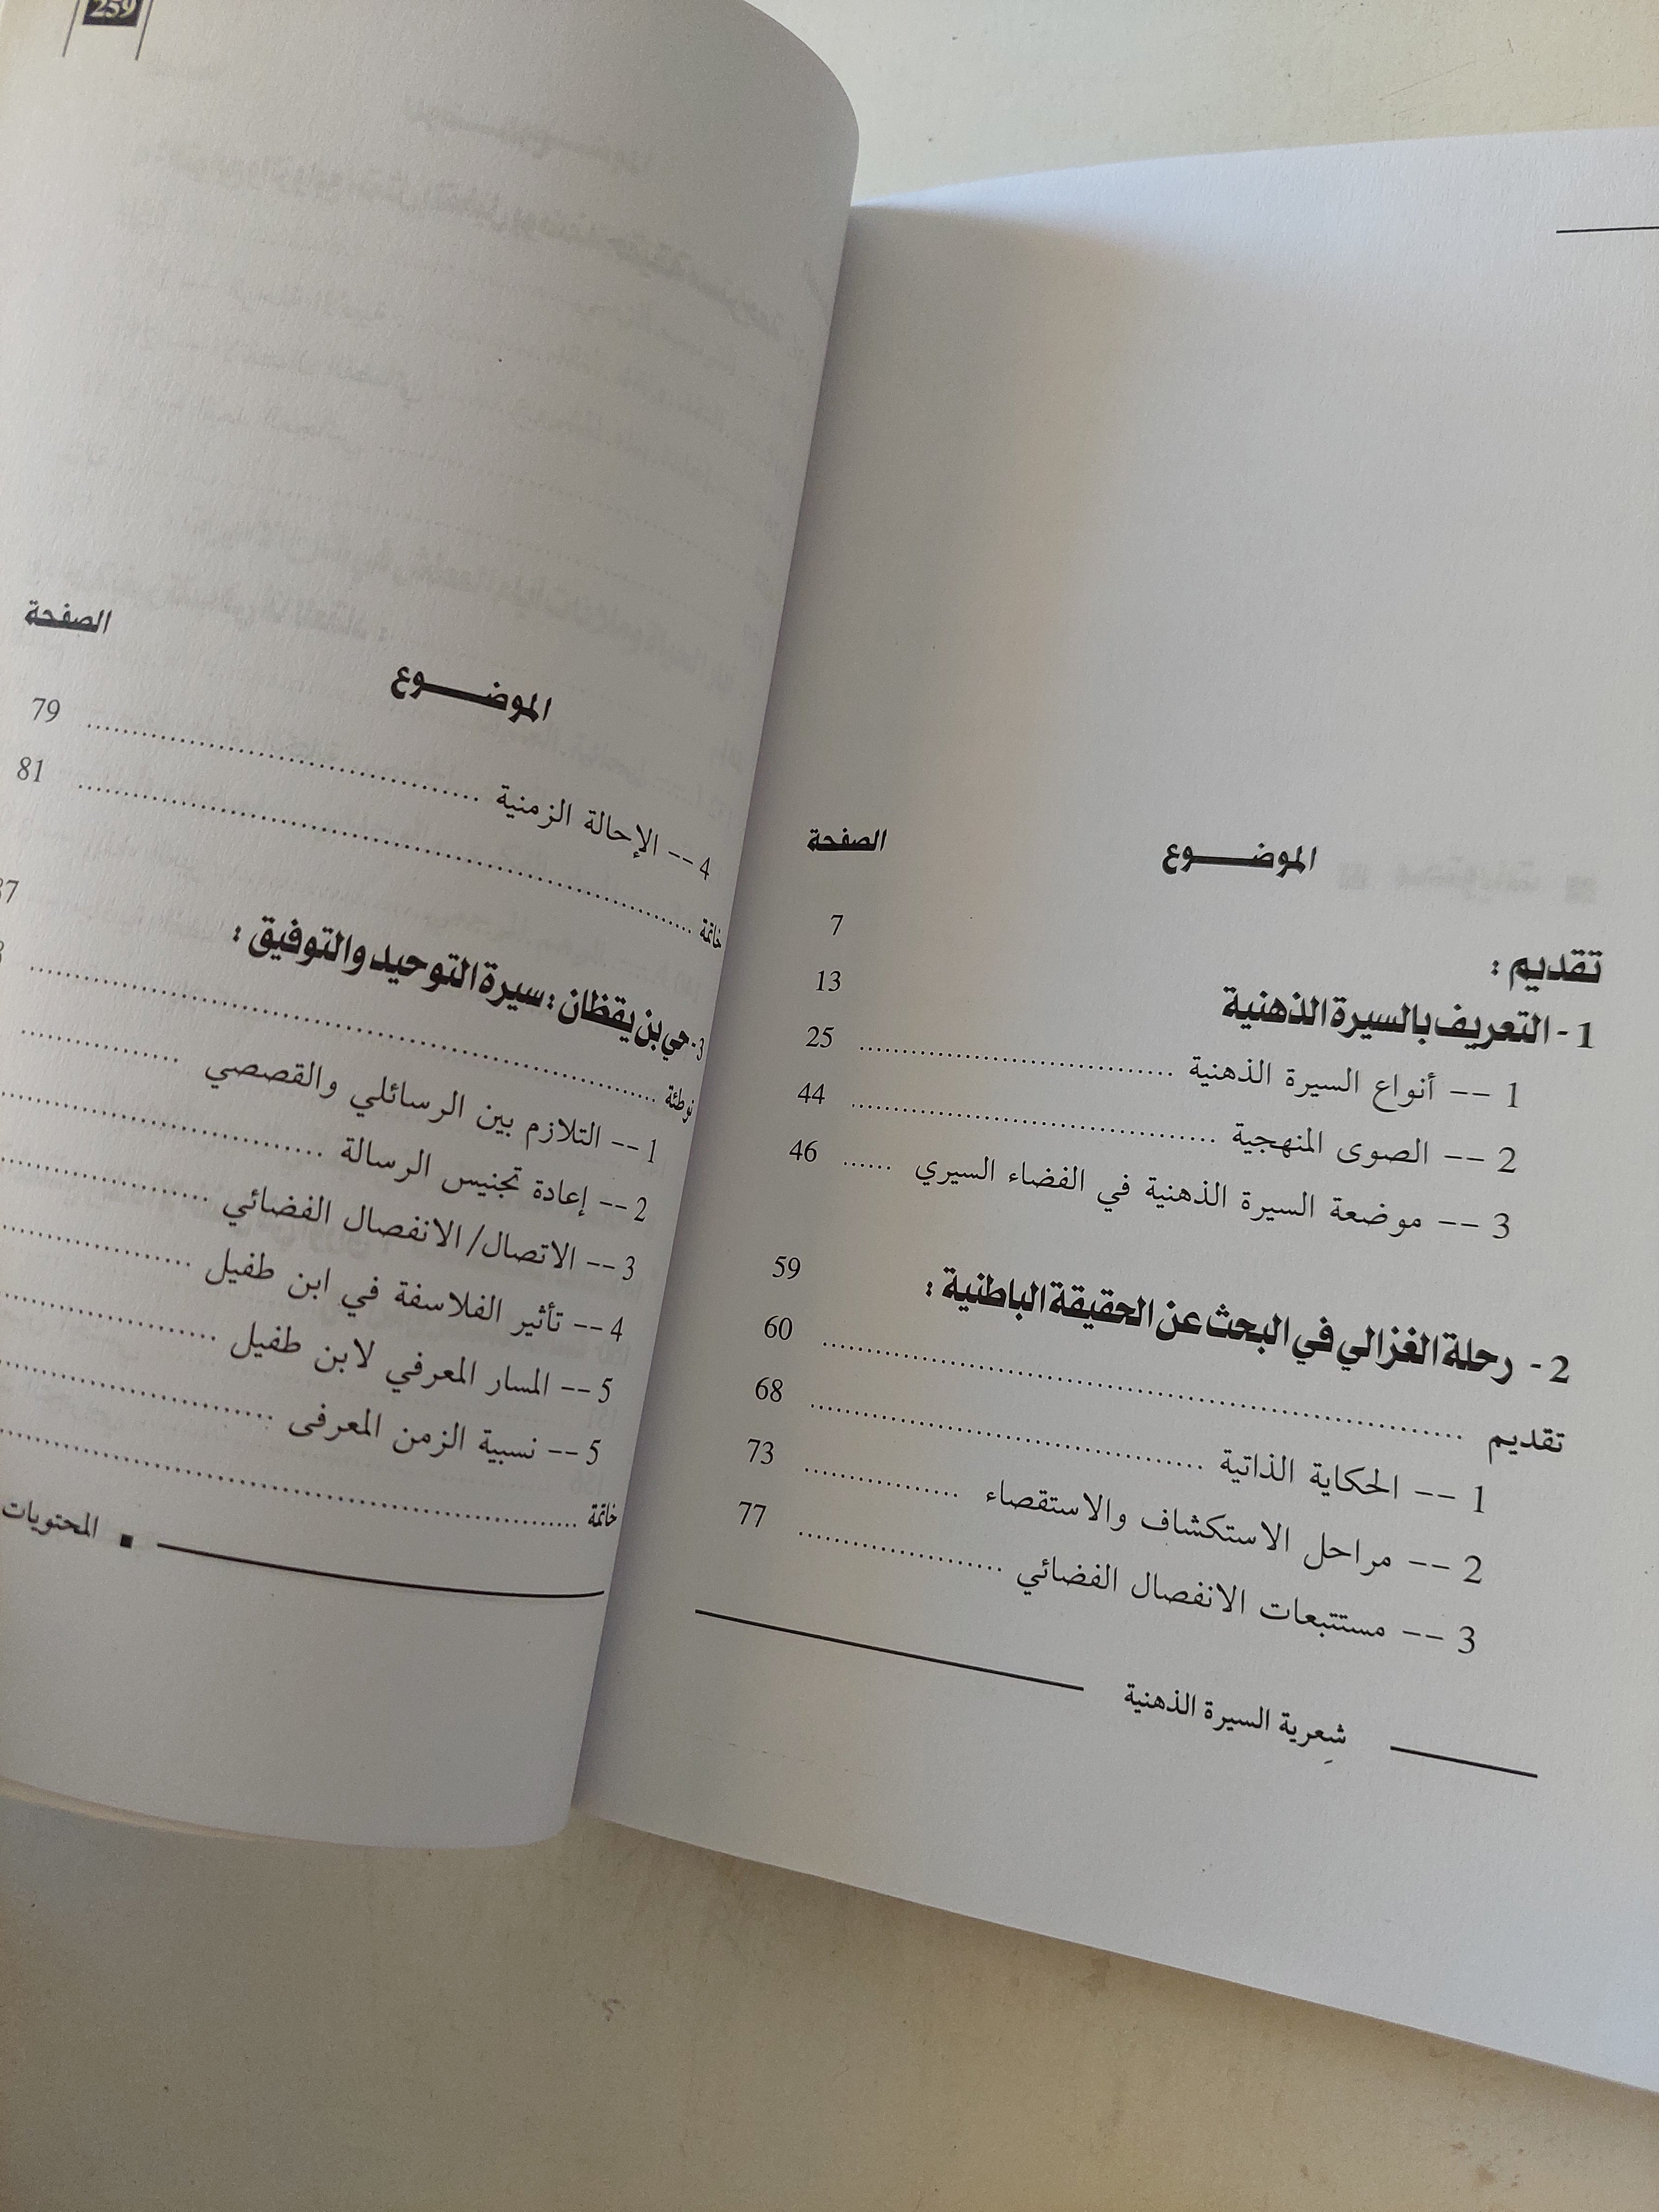 الموضـــــوع الصفحة
تقديم : 7
1 - التعريف بالسيرة الذهنية 13
1 -- أنواع السيرة الذهنية ................................ 25
2 -- الصوى المنهجية ................................ 44
3 -- موضعة السيرة الذهنية في الفضاء السيري ...... 46
2 - رحلة الغزالي في البحث عن الحقيقة الباطنية : 59
تقديم ................................ 60
1 -- الحكاية الذاتية ................................ 68
2 -- مراحل الاستكشاف والاستقصاء ................ 73
3 -- مستتبعات الانفصال الفضائي ..................... 77
شِعرية السيرة الذهنية
259
الموضـــــوع الصفحة
4 -- الإحالة الزمنية ................................ 79
خاتمة ................................ 81
3- حي بن يقظان : سيرة التوحيد والتوفيق :
توطئة ................................
1 -- التلازم بين الرسائلي والقصصي ................
2 -- إعادة تجنيس الرسالة ................................
3 -- الاتصال/ الانفصال الفضائي ......................
4 -- تأثير الفلاسفة في ابن طفيل ......................
5 -- المسار المعرفي لابن طفيل ......................
5 -- نسبية الزمن المعرفى ................................
خاتمة ................................
المحتويات